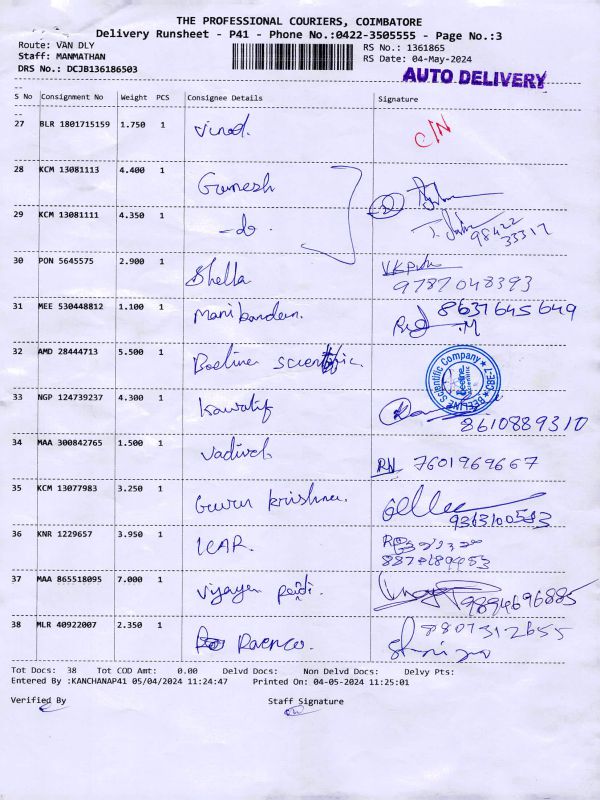 THE PROFESSIONAL COURIERS, COIMBATORE
Delivery Runsheet - P41 - Phone No.:0422-3505555 - Page No.:3
Route: VAN DLY RS No.: 1361865
Staff: MANMATHAN RS Date: 04-May-2024
DRS No.: DCJB136186503
AUTO DELIVERY
S No Consignment No Weight PCS Consignee Details Signature
27 BLR 1801715159 1.750 1 Vinod. C/N
28 KCM 13081113 4.400 1 Ganesh
29 KCM 13081111 4.350 1 -do- 98422
33317
30 PON 5645575 2.900 1 Shella
9787048393
31 MEE 530448812 1.100 1 Manikandan. 8637645649
32 AMD 28444713 5.500 1 Beeline scientific.
BEELINE Scientific Company CBE-1
Beeline
Scientific
33 NGP 124739237 4.300 1
8610889310
34 MAA 300842765 1.500 1 Vadivel RN 7601969667
35 KCM 13077983 3.250 1 krishna.
9363100583
36 KNR 1229657 3.950 1 ICAR.
37 MAA 865518095 7.000 1 Vijayan 9894696885
38 MLR 40922007 2.350 1 8807312655
Tot Docs: 38 Tot COD Amt: 0.00 Delvd Docs: Non Delvd Docs: Delvy Pts:
Entered By :KANCHANAP41 05/04/2024 11:24:47 Printed On: 04-05-2024 11:25:01
Verified By Staff Signature